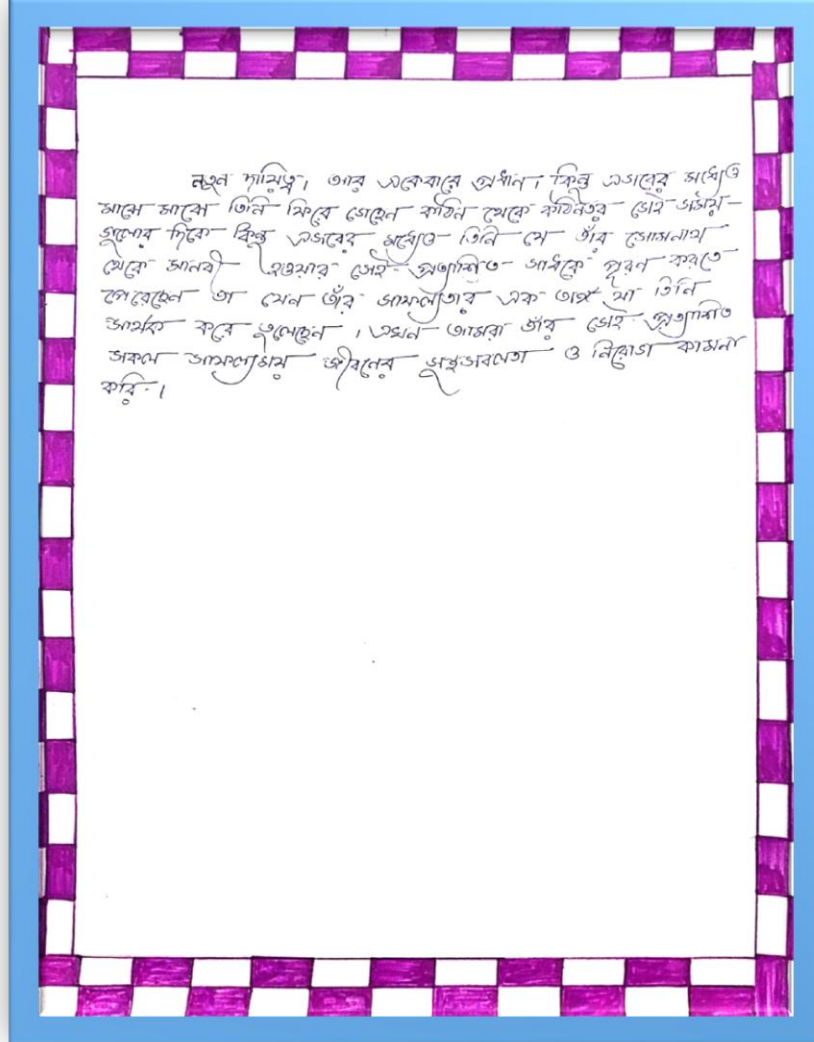 নতুন দায়িত্ব। আর একেবারে প্রধান। কিন্তু এসবের মধ্যেও
মাঝে মাঝে তিনি ফিরে গেছেন কঠিন থেকে কঠিনতর সেই সময়-
গুলোর দিকে কিন্তু এসবের মধ্যেও তিনি যে তাঁর সোমনাথ
থেকে মানবী হওয়ার সেই প্রত্যাশিত সাধকে পূরণ করতে
পেরেছেন তা যেন তাঁর সাফল্যতার এক অঙ্গ যা তিনি
সার্থক করে তুলেছেন। এখন আমরা তাঁর সেই প্রত্যাশিত
সকল সাফল্যময় জীবনের ও নিরোগ কামনা
করি।